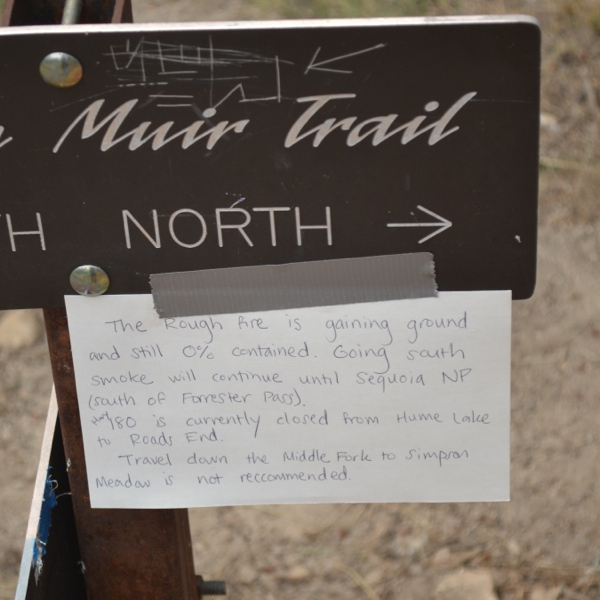 Muir Trail
TH NORTH →
The Rough fire is gaining ground
and still 0% contained. Going south
smoke will continue until Sequoia NP
(south of Forrester Pass).
Hwy 180 is currently closed from Hume Lake
to Roads End.
Travel down the Middle Fork to Simpson
Meadow is not reccommended.